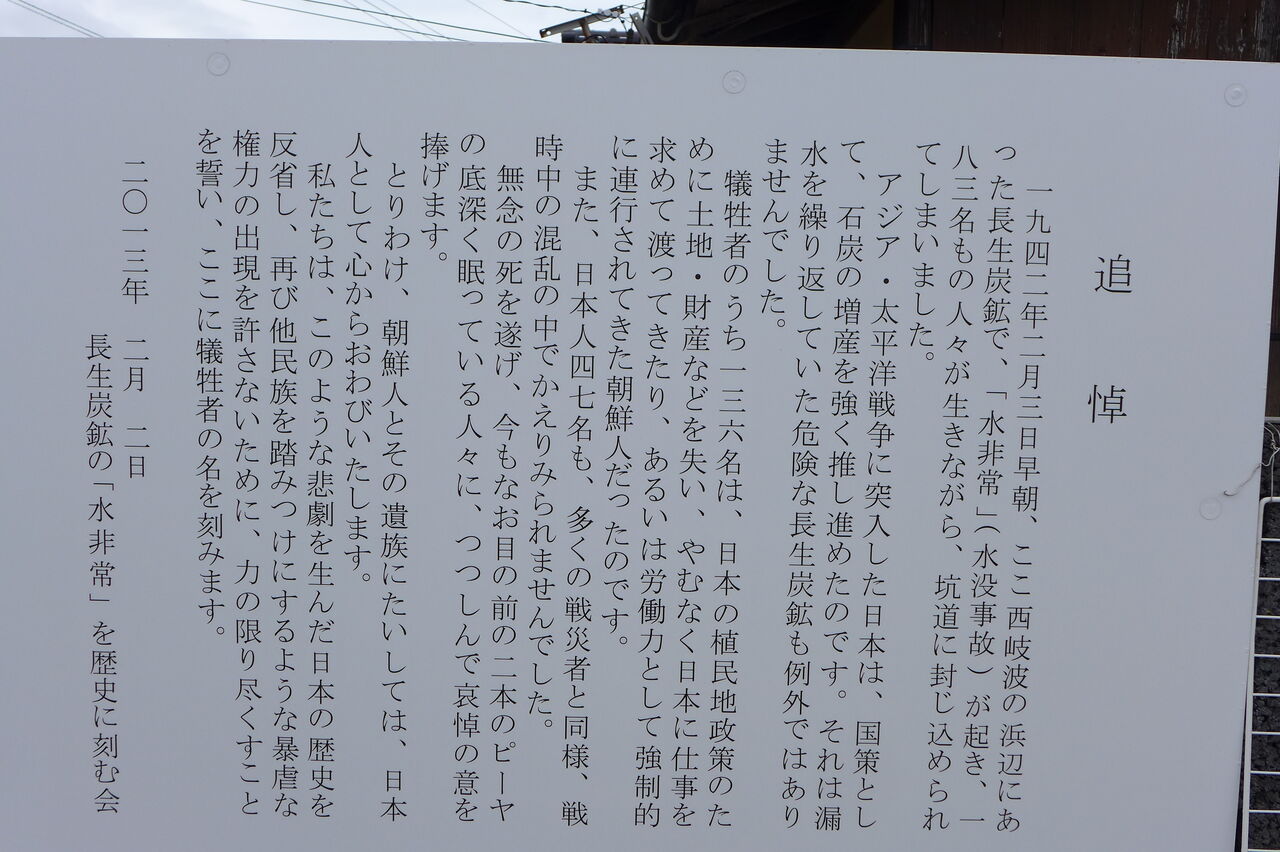 追悼
一九四二年二月三日早朝、ここ西岐波の浜辺にあ
った長生炭鉱で、「水非常」（水没事故）が起き、一
八三名もの人々が生きながら、坑道に封じ込められ
てしまいました。
アジア・太平洋戦争に突入した日本は、国策とし
て、石炭の増産を強く推し進めたのです。それは漏
水を繰り返していた危険な長生炭鉱も例外ではあり
ませんでした。
犠牲者のうち一三六名は、日本の植民地政策のた
めに土地・財産などを失い、やむなく日本に仕事を
求めて渡ってきたり、あるいは労働力として強制的
に連行されてきた朝鮮人だったのです。
また、日本人四七名も、多くの戦災者と同様、戦
時中の混乱の中でかえりみられませんでした。
無念の死を遂げ、今もなお目の前の二本のピーヤ
の底深く眠っている人々に、つつしんで哀悼の意を
捧げます。
とりわけ、朝鮮人とその遺族にたいしては、日本
人として心からおわびいたします。
私たちは、このような悲劇を生んだ日本の歴史を
反省し、再び他民族を踏みつけにするような暴虐な
権力の出現を許さないために、力の限り尽くすこと
を誓い、ここに犠牲者の名を刻みます。
二〇一三年 二月 二日
長生炭鉱の「水非常」を歴史に刻む会